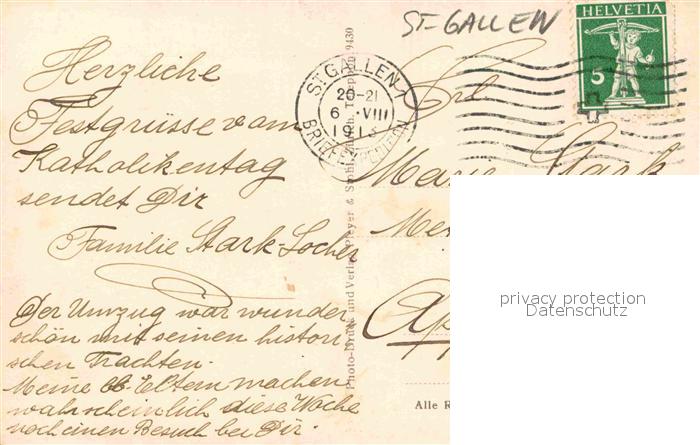 ST-GALLEN
HELVETIA
5
ST. GALLEN 1
20-21
6. VIII
1913
BRIEFEXPEDITION
Herzliche
Festgrüsse vom
Katholikentag
sendet Dir
Familie Stark-Locher
Der Umzug war wunder
schön mit seinen histori
schen Trachten.
Meine lb. Eltern machen
wahrscheinlich diese Woche
noch einen Besuch bei Dir.
Photo-Druck und Verlag Pleyer &
9430
Frl
Marie Stark
Alle R
privacy protection
Datenschutz